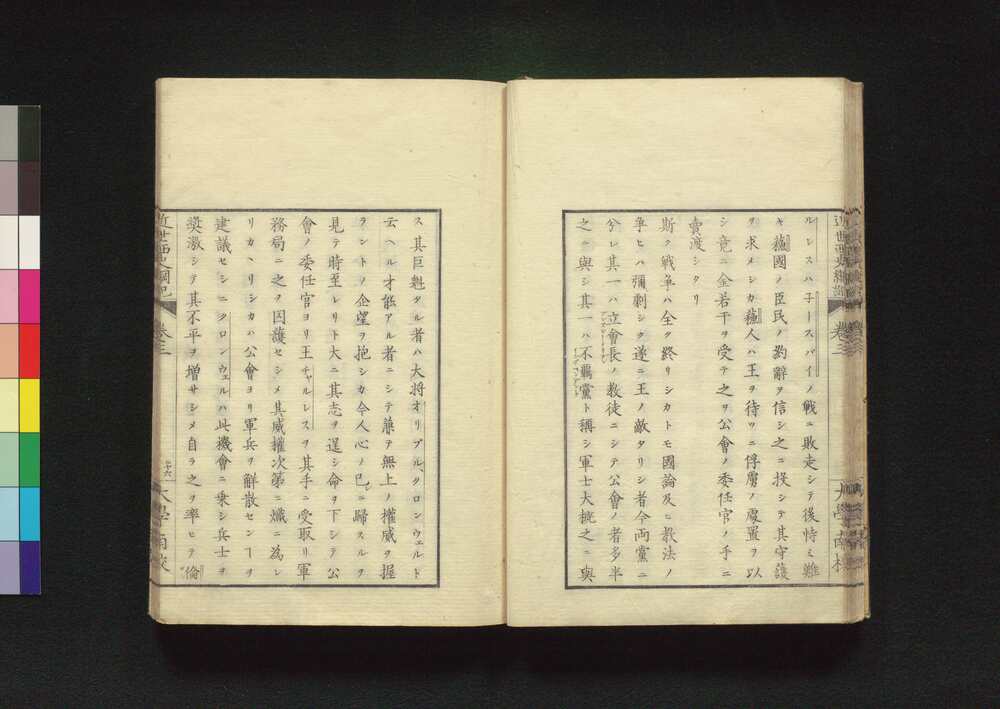 近世西史綱紀 卷三 大學南校
ルレスハ子ースバイノ戰ニ敗走シテ後恃ミ難
キ蘓國ノ臣民ノ約辭ヲ信シ之ニ投シテ其守護
ヲ求メシカ蘓人ハ王ヲ待ツニ俘虜ノ處置ヲ以
シ竟ニ金若干ヲ受テ之ヲ公會ノ委任官ノ手ニ
賣渡シタリ
斯ク戰爭ハ全ク終リシカトモ國論及ヒ教法ノ
爭ヒハ彌劇シク遂ニ王ノ敵タリシ者今両黨ニ
分レ其一ハ立會長ノ教徒ニシテ公會ノ者多半
之ニ與シ其一ハ不羈黨ト稱シ軍士大抵之ニ與
ス其巨魁タル者ハ大将オリブル、クロンウェルト
云ヘル才能アル者ニシテ兼テ無上ノ權威ヲ握
ラントノ企望ヲ抱シカ今人心ノ已ニ歸スルヲ
見テ時至レリト大ニ其志ヲ逞シ命ヲ下シテ公
會ノ委任官ヨリ王チャルレスヲ其手ニ受取リ軍
務局ニ之ヲ因護セシメ其威權次第ニ熾ニ為レ
リカヽリシカハ公會ヨリ軍兵ヲ解散センヿヲ
建議セシニクロンウェルハ此機會ニ乗シ兵士ヲ
奬激シテ其不平ヲ増サシメ自ラ之ヲ率ヒテ倫
近世西史綱紀 卷三 二十六 大學南校